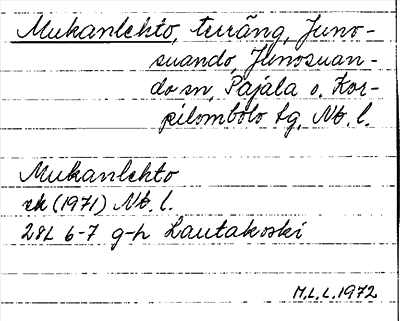 Mukanlehto, terräng, Juno-
suando, Junosuan-
do sn, Pajala o. Kor-
pilombolo tg, Nb. l.
Mukanlehto
ek (1971) Nb. l.
28L 6-7 g-h Lautakoski
M.L.L. 1972